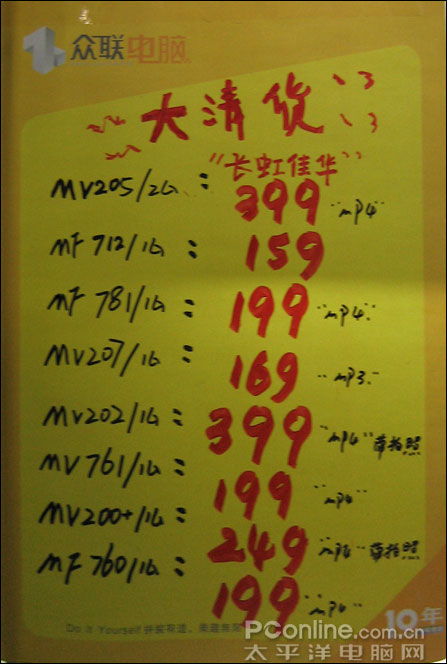 众联电脑
大清货
"长虹佳华"
MV205/2G: 399 "MP4"
MF 712/1G: 159
MF 781/1G: 199 "MP4"
MV207/1G: 169 "MP3"
MV202/1G: 399 "MP4" 带拍照
MV761/1G: 199 "MP4"
MV200+/1G: 249 "MP4" 带拍照
MF760/1G: 199 "MP4"
Do It Yourself
10年
PConline.com.cn
太平洋电脑网